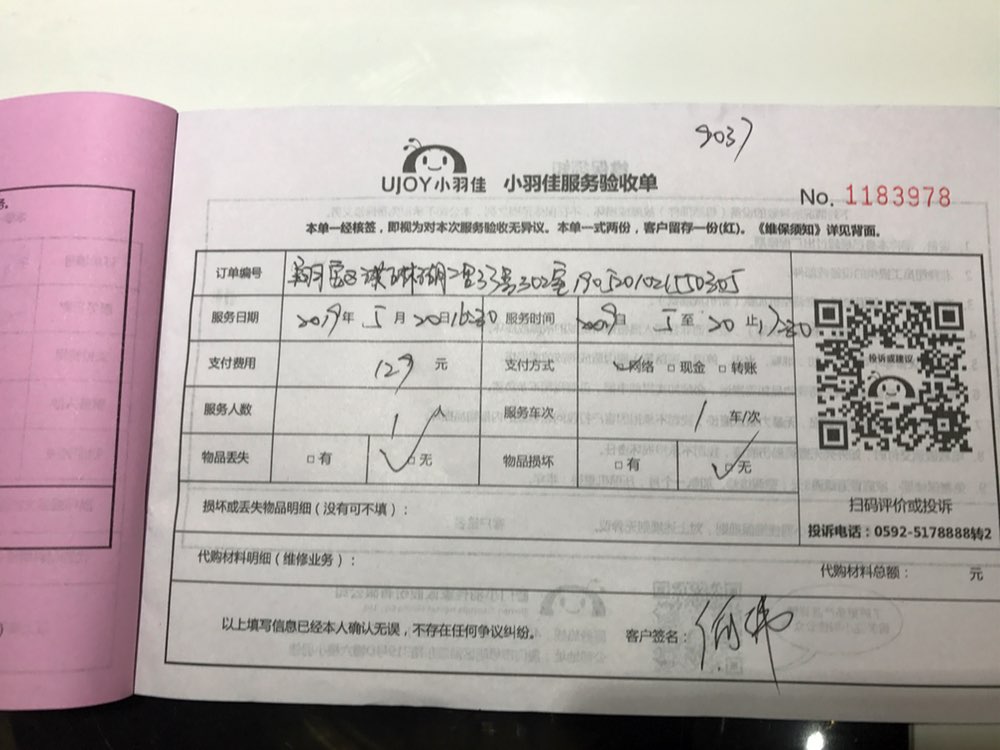 9037
UJOY小羽佳 小羽佳服务验收单
No. 1183978
本单一经核签，即视为对本次服务验收无异议。本单一式两份，客户留存一份(红)。《维保须知》详见背面。
订单编号 33号302室 1905201026550305
服务日期 2019年 5月 20日16:30 服务时间 2019日 5至 20止17:30
支付费用 129 元 支付方式 ✓网络 □现金 □转账
服务人数 1人 服务车次 1 车/次
物品丢失 □有 ✓□无 物品损坏 □有 ✓□无
投诉或建议
扫码评价或投诉
损坏或丢失物品明细（没有可不填）：
投诉电话：0592-5178888转2
代购材料明细（维修业务）：
代购材料总额： 元
以上填写信息已经本人确认无误，不存在任何争议纠纷。 客户签名：